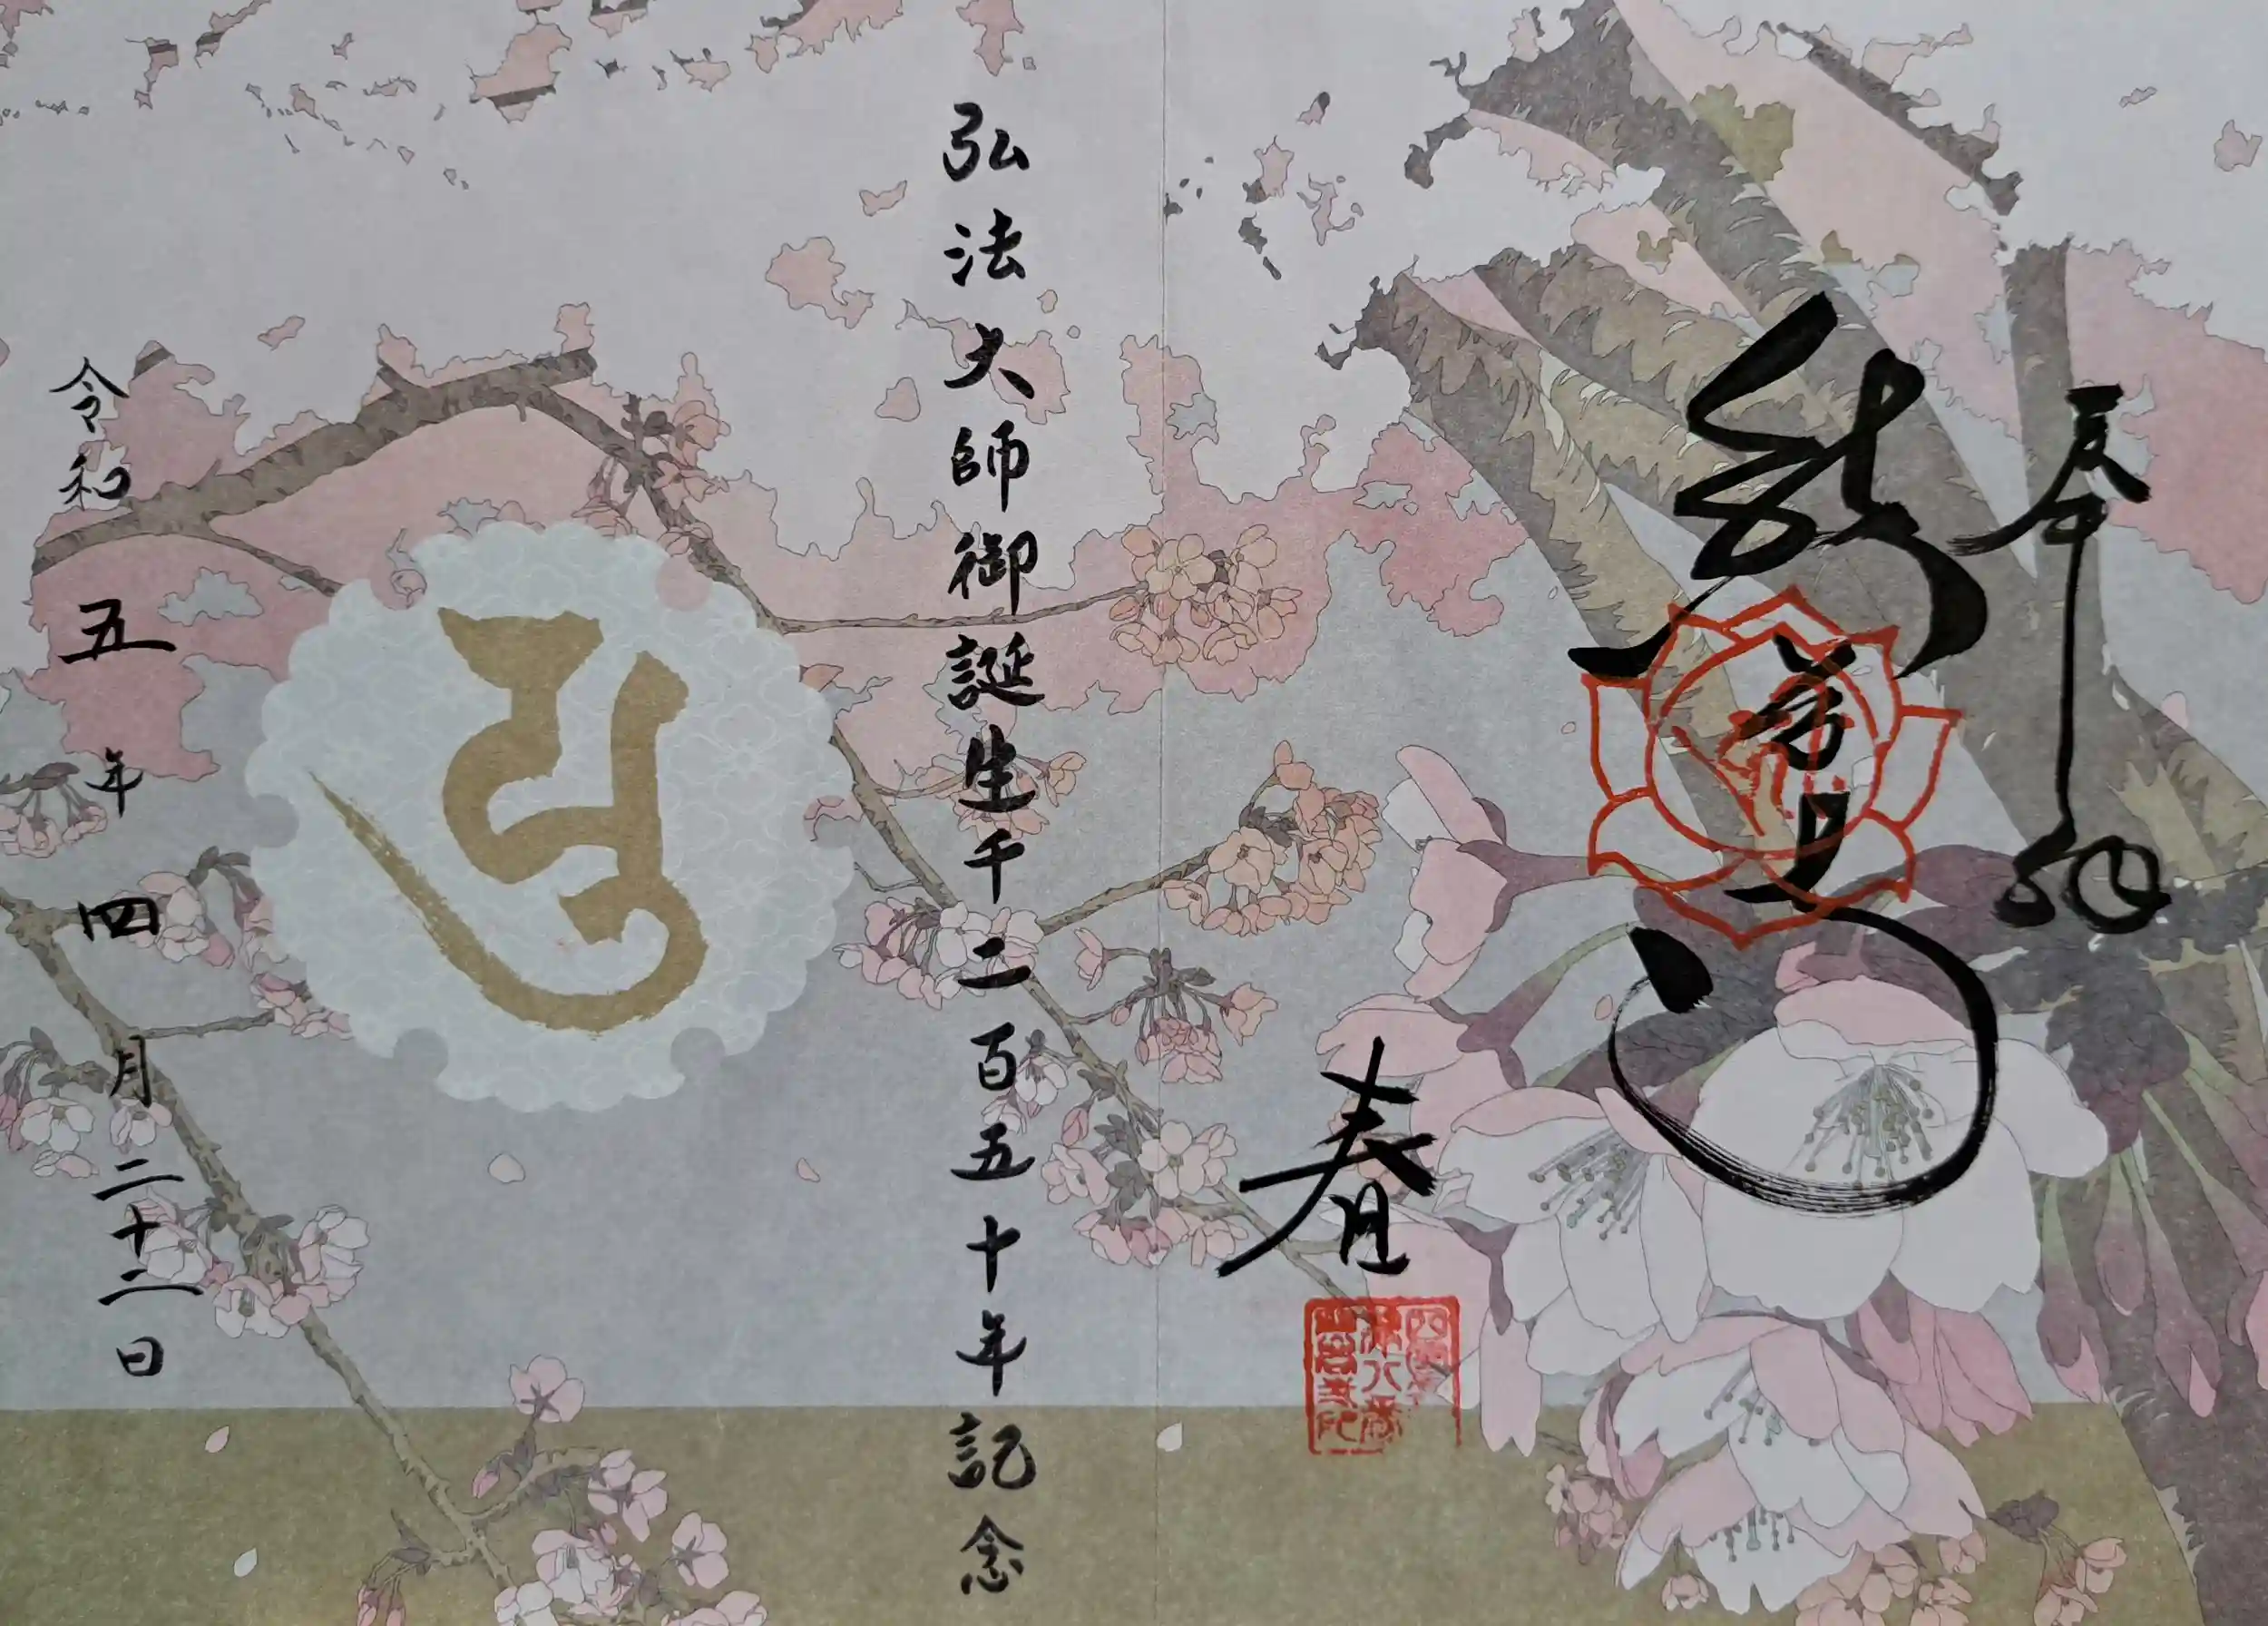 奉納
春
弘法大師御誕生千二百五十年記念
令和五年四月二十二日